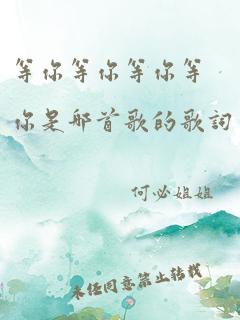 等你等你等你等
你是那首歌的歌詞
何必姐姐
未经同意禁止转载